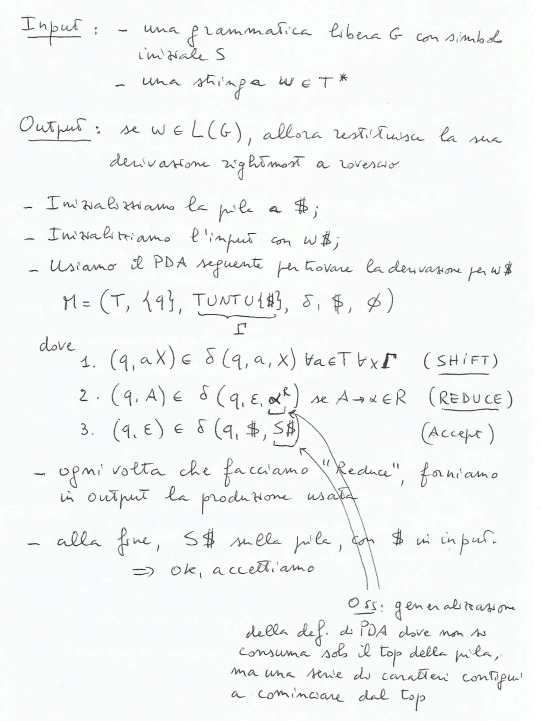 Input : - una grammatica libera G con simbolo
iniziale S
- una stringa w ∈ T*
Output : se w ∈ L(G), allora restituisce la sua
derivazione rightmost a rovescio
- Inizializziamo la pila a $;
- Inizializziamo l'input con w$;
- Usiamo il PDA seguente per trovare la derivazione per w$
M = (T, {q}, T∪NT∪{$}, δ, $, ∅)
Γ
dove
1. (q, aX) ∈ δ(q, a, X) ∀a∈T ∀X∈Γ (SHIFT)
2. (q, A) ∈ δ(q, ε, α^R) se A→α∈R (REDUCE)
3. (q, ε) ∈ δ(q, $, S$) (Accept)
- ogni volta che facciamo "Reduce", forniamo
in output la produzione usata
- alla fine, S$ sulla pila, con $ in input.
⇒ ok, accettiamo
Oss: generalizzazione
della def. di PDA dove non si
consuma solo il top della pila,
ma una serie di caratteri contigui
a cominciare dal top